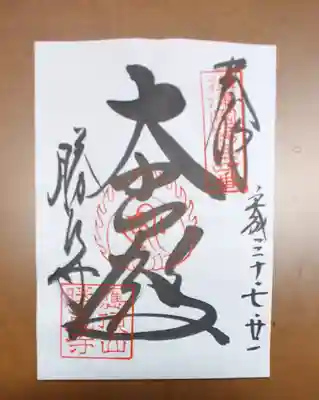 奉拝
平成三十・七・廿一
大悲殿
勝尾寺
應頂山
勝尾寺